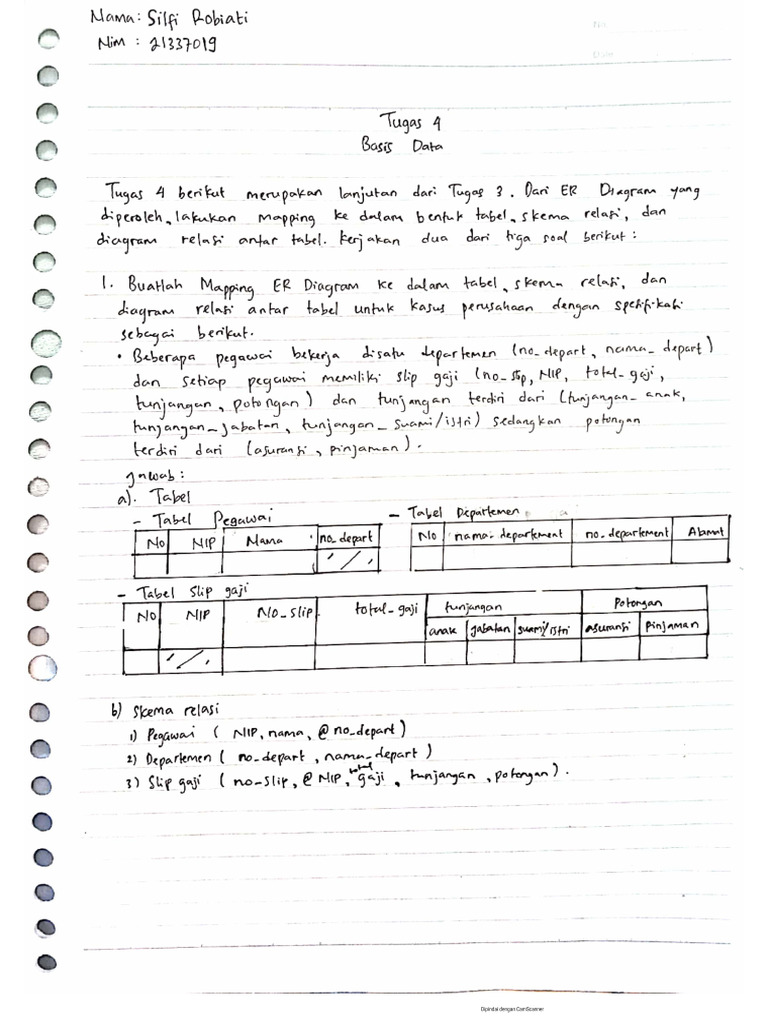 Nama: Silfi Robiati
Nim : 21337019
No.
Date
Tugas 4
Basis Data
Tugas 4 berikut merupakan lanjutan dari Tugas 3. Dari ER Diagram yang
diperoleh, lakukan mapping ke dalam bentuk tabel, skema relasi, dan
diagram relasi antar tabel. Kerjakan dua dari tiga soal berikut :
1. Buatlah Mapping ER Diagram ke dalam tabel, skema relasi, dan
diagram relasi antar tabel untuk kasus perusahaan dengan spesifikasi
sebagai berikut.
• Beberapa pegawai bekerja disatu departemen (no_depart, nama_depart)
dan setiap pegawai memiliki slip gaji (no_slip, NIP, total_gaji,
tunjangan, potongan) dan tunjangan terdiri dari (tunjangan_anak,
tunjangan_jabatan, tunjangan_suami/istri) sedangkan potongan
terdiri dari (asuransi, pinjaman).
Jawab :
a). Tabel
- Tabel Pegawai
No NIP Nama no_depart
- Tabel Departemen
No nama-departement no.departement Alamat
- Tabel Slip gaji
No NIP No_slip total_gaji tunjangan Potongan
anak jabatan suami/istri asuransi pinjaman
b) Skema relasi
1) Pegawai ( NIP, nama, @ no_depart)
2) Departemen ( no_depart, nama_depart )
3) Slip gaji ( no-slip, @ NIP, total gaji, tunjangan, potongan).
Dipindai dengan CamScanner